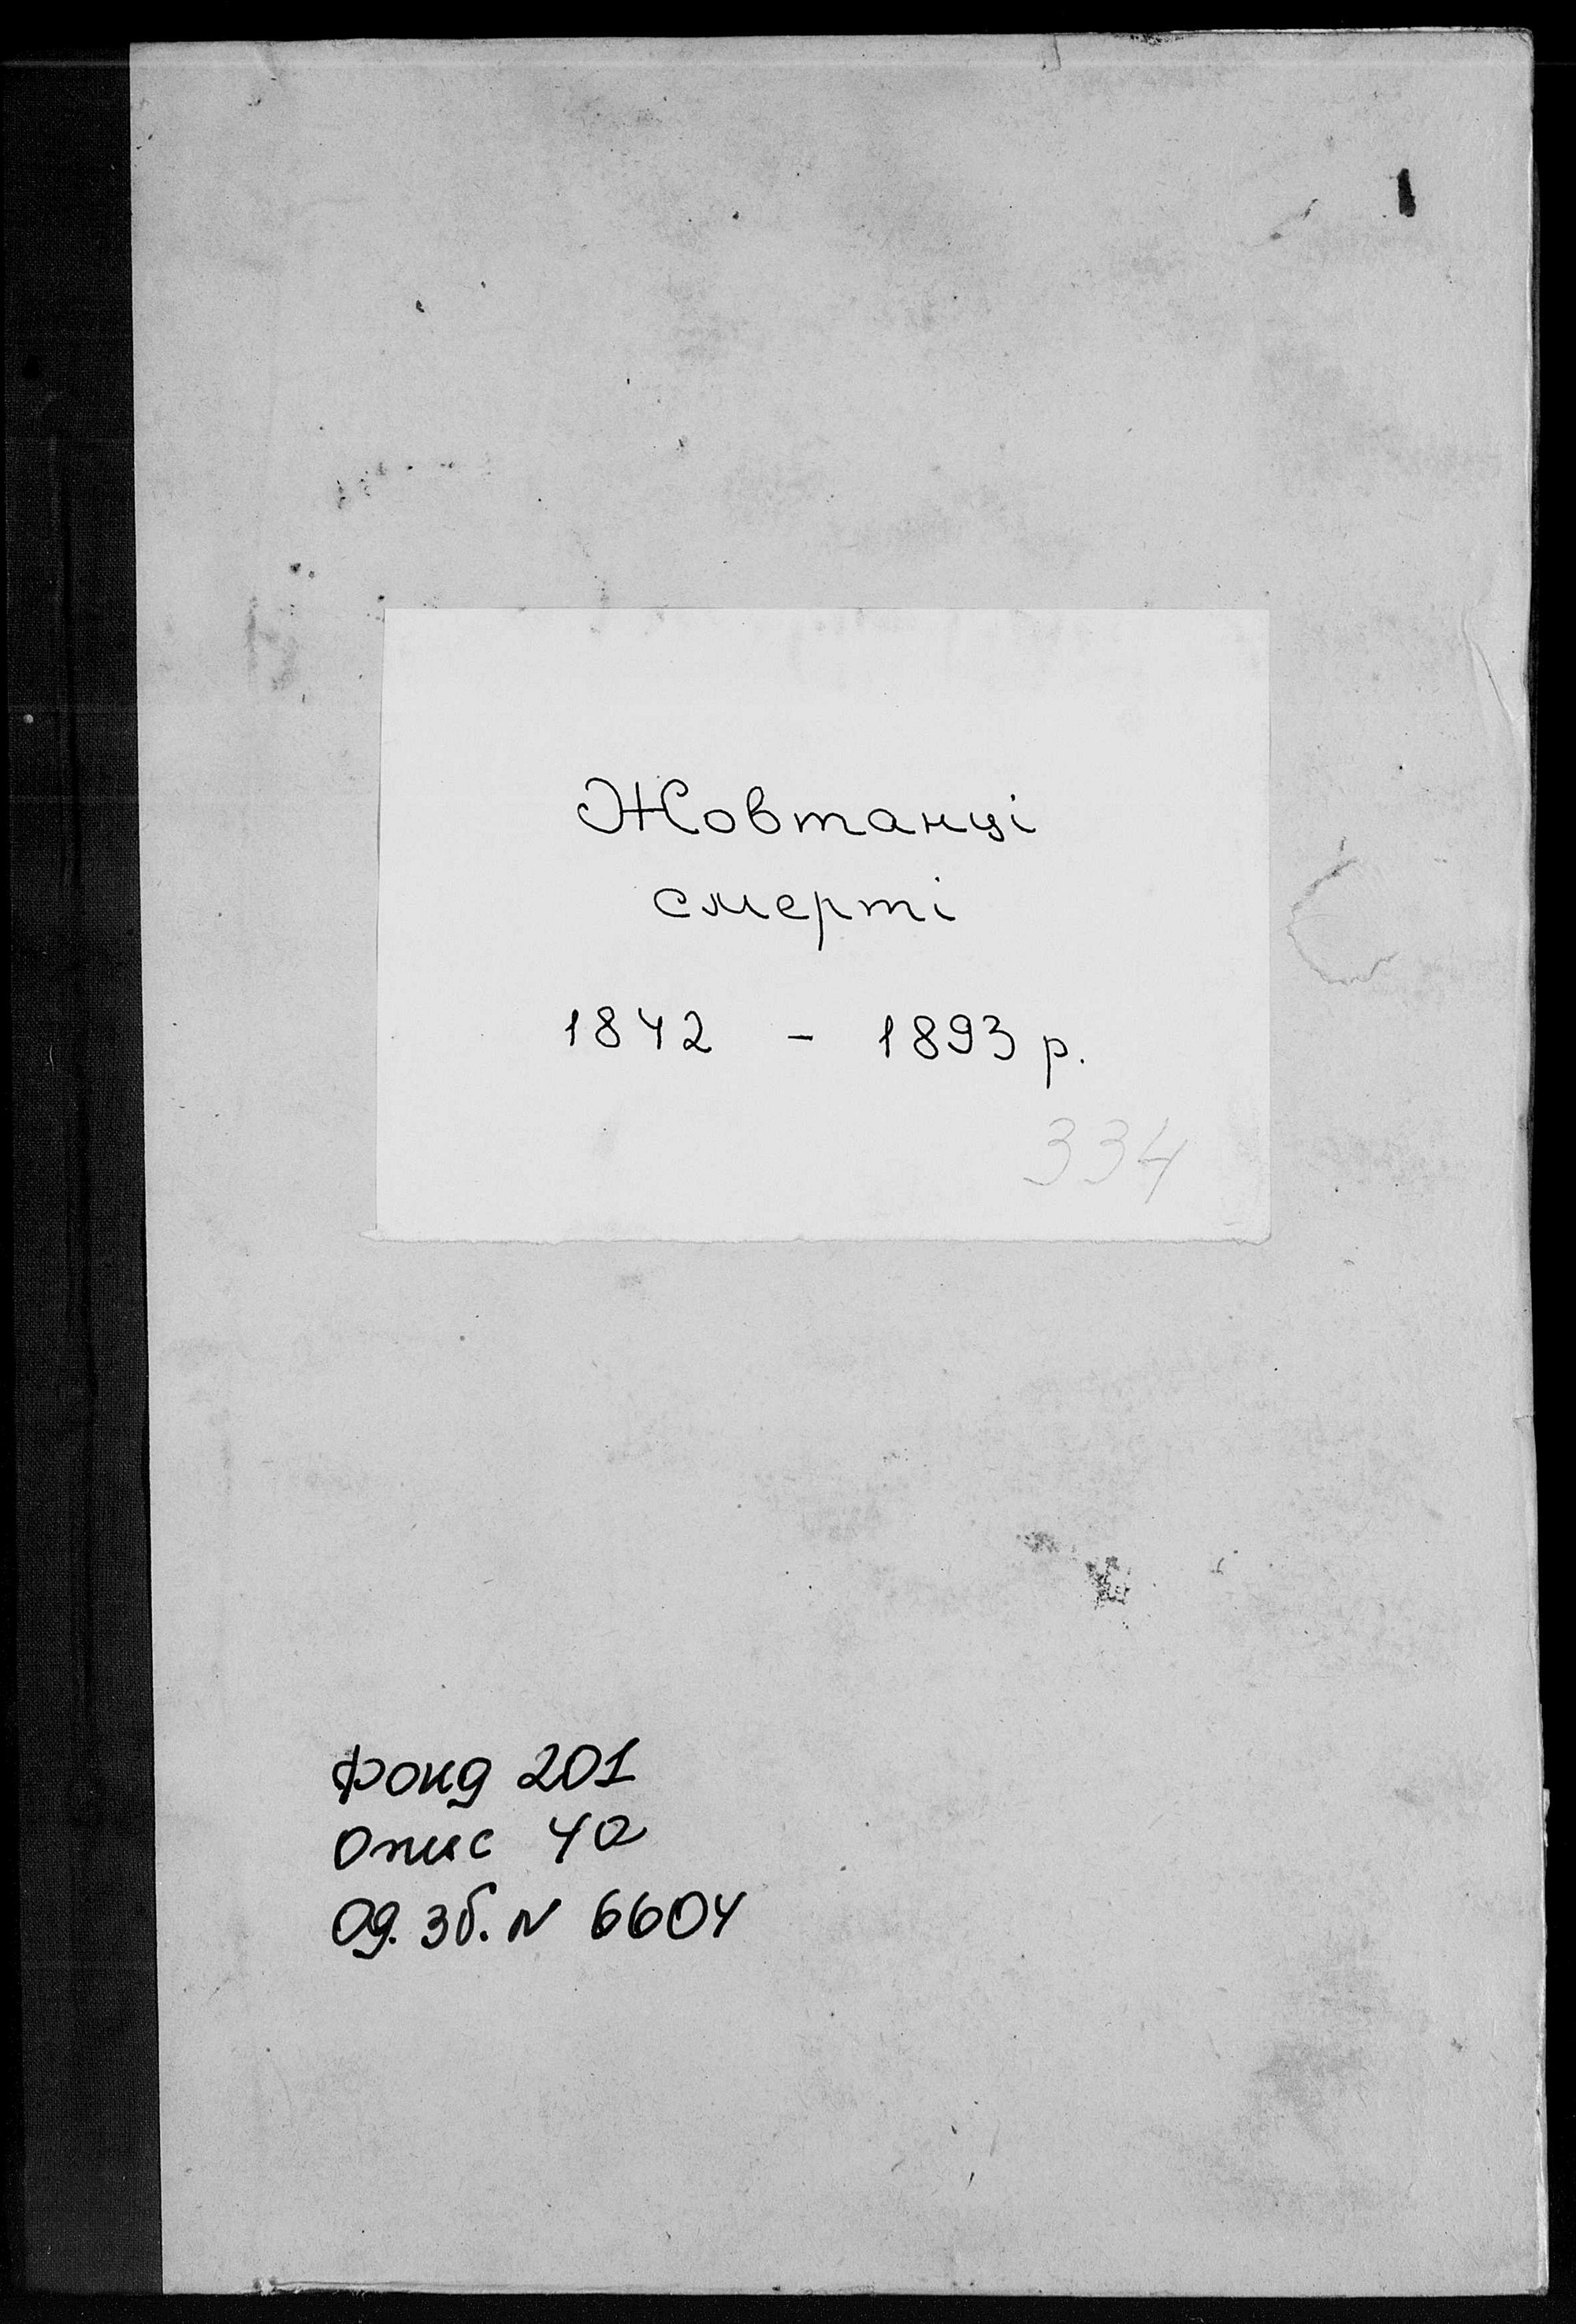 Жовтанці
смерті
1842 - 1893 р.
334
Фонд 201
Опис 4а
Од. зб. N 6604